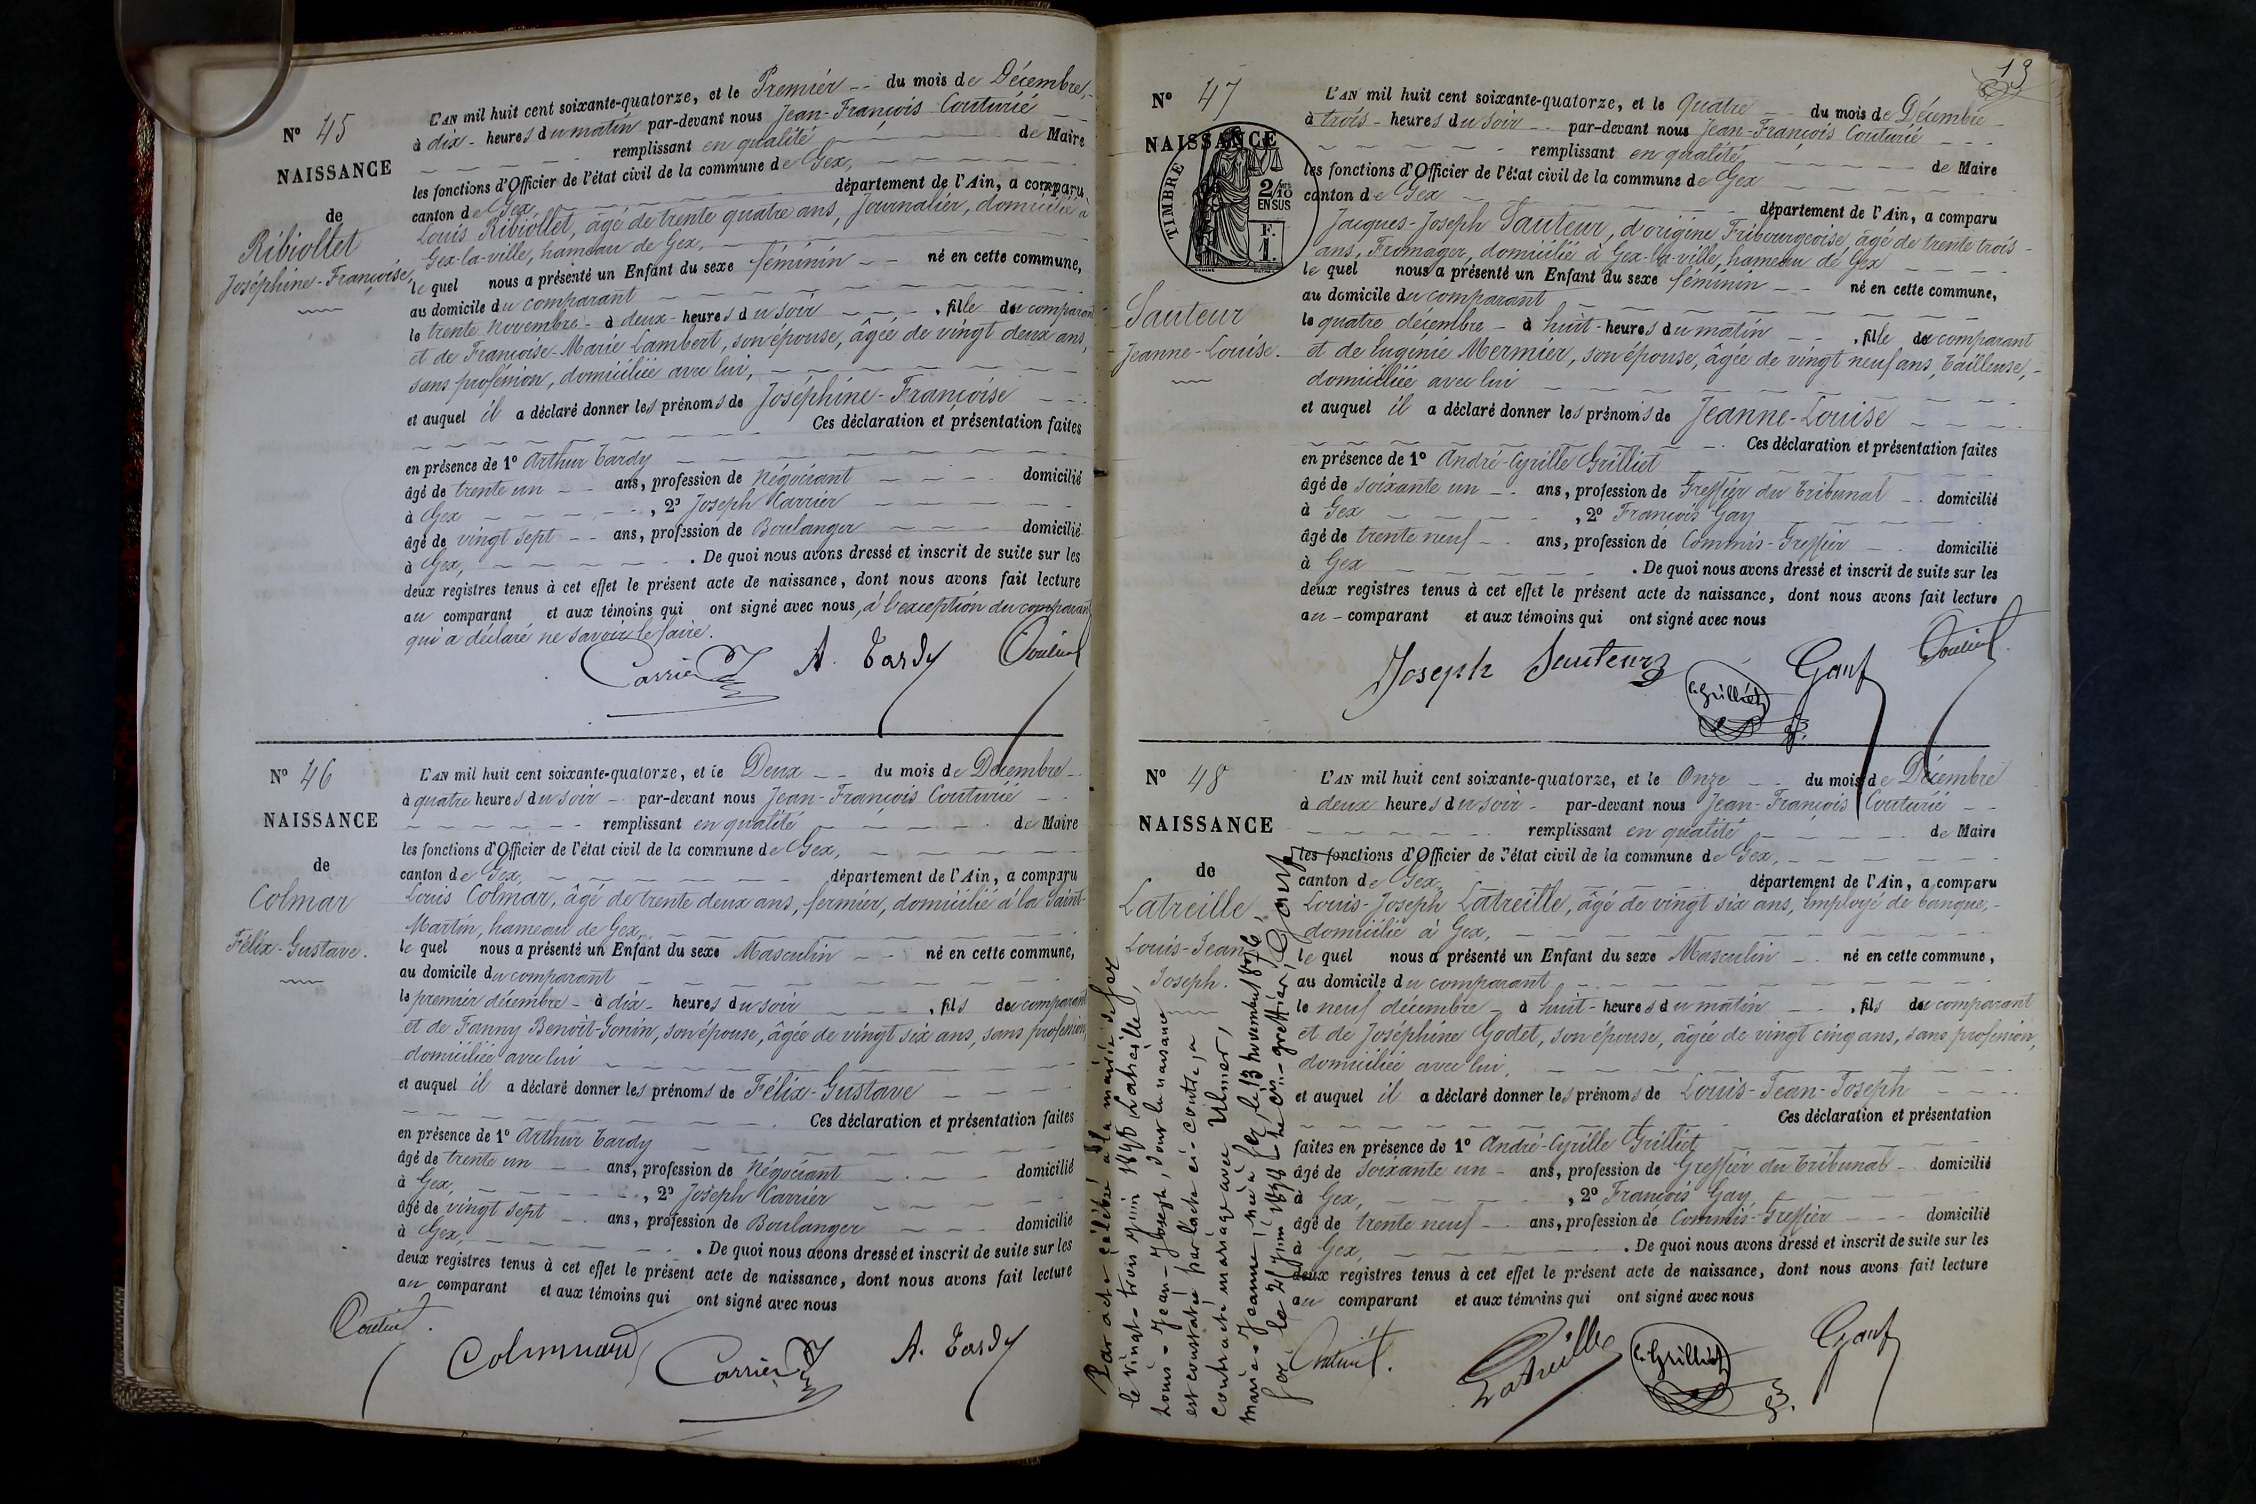 N° 45
NAISSANCE
de
Ribiollet
Joséphine-Françoise,
L'AN mil huit cent soixante-quatorze, et le Premier du mois de Décembre,
à dix heures du matin par-devant nous Jean-François Couturié
remplissant en qualité de Maire
les fonctions d'Officier de l'état civil de la commune de Gex,
canton de Gex, département de l'Ain, a comparu
Louis Ribiollet, âgé de trente quatre ans, Journalier, domicilié à
Gex-la-ville, hameau de Gex,
le quel nous a présenté un Enfant du sexe féminin né en cette commune,
au domicile du comparant
le trente Novembre à deux heures du soir, fille du comparant
et de Françoise-Marie Lambert, son épouse, âgée de vingt deux ans,
sans profession, domiciliée avec lui,
et auquel il a déclaré donner les prénoms de Joséphine-Françoise
Ces déclaration et présentation faites
en présence de 1° Arthur Tardy
âgé de trente un ans, profession de Négociant domicilié
à Gex, 2° Joseph Carrier
âgé de vingt sept ans, profession de Boulanger domicilié
à Gex, . De quoi nous avons dressé et inscrit de suite sur les
deux registres tenus à cet effet le présent acte de naissance, dont nous avons fait lecture
au comparant et aux témoins qui ont signé avec nous, à l'exception du comparant
qui a déclaré ne savoir le faire.
Carrier A. Tardy Couturié
N° 46
NAISSANCE
de
Colmar
Félix-Gustave.
L'AN mil huit cent soixante-quatorze, et le Deux du mois de Décembre
à quatre heures du soir par-devant nous Jean-François Couturié
remplissant en qualité de Maire
les fonctions d'Officier de l'état civil de la commune de Gex,
canton de Gex, département de l'Ain, a comparu
Louis Colmar, âgé de trente deux ans, fermier, domicilié à la Saint-
Martin, hameau de Gex,
le quel nous a présenté un Enfant du sexe Masculin né en cette commune,
au domicile du comparant
le premier décembre à dix heures du soir, fils du comparant
et de Fanny Benoît-Gonin, son épouse, âgée de vingt six ans, sans profession,
domiciliée avec lui
et auquel il a déclaré donner les prénoms de Félix-Gustave
Ces déclaration et présentation faites
en présence de 1° Arthur Tardy
âgé de trente un ans, profession de Négociant domicilié
à Gex, 2° Joseph Carrier
âgé de vingt sept ans, profession de Boulanger domicilié
à Gex, . De quoi nous avons dressé et inscrit de suite sur les
deux registres tenus à cet effet le présent acte de naissance, dont nous avons fait lecture
au comparant et aux témoins qui ont signé avec nous
Couturié
Carrier A. Tardy
13
N° 47
NAISSANCE
TIMBRE
2/10
EN SUS
F.
1.
Sauteur
Jeanne-Louise.
L'AN mil huit cent soixante-quatorze, et le Quatre du mois de Décembre
à trois heures du soir par-devant nous Jean-François Couturié
remplissant en qualité de Maire
les fonctions d'Officier de l'état civil de la commune de Gex
canton de Gex département de l'Ain, a comparu
Jacques-Joseph Sauteur, d'origine Fribourgeoise, âgé de trente trois
ans, Fromager, domicilié à Gex-la-ville, hameau de Gex
le quel nous a présenté un Enfant du sexe féminin né en cette commune,
au domicile du comparant
le quatre décembre à huit heures du matin, fille du comparant
et de Eugénie Mermier, son épouse, âgée de vingt neuf ans, Tailleuse,
domiciliée avec lui
et auquel il a déclaré donner les prénoms de Jeanne-Louise
Ces déclaration et présentation faites
en présence de 1° André-Cyrille Grilliet
âgé de soixante un ans, profession de Greffier du Tribunal domicilié
à Gex, 2° François Gay
âgé de trente neuf ans, profession de Commis-Greffier domicilié
à Gex . De quoi nous avons dressé et inscrit de suite sur les
deux registres tenus à cet effet le présent acte de naissance, dont nous avons fait lecture
au comparant et aux témoins qui ont signé avec nous
Joseph Sauteur C. Grilliet Gay Couturié
N° 48
NAISSANCE
de
Latreille
Louis-Jean
Joseph.
Par acte célébré à la mairie de Gex
le vingt-trois juin 1898 Latreille,
Louis-Jean-Joseph, dont la naissance
est constatée par l'acte ci-contre, a
contracté mariage avec Ulmer,
Marie-Jeanne, née à Gex, le 13 novembre 1876.
Gex le 25 juin 1898 greffier, Gay
L'AN mil huit cent soixante-quatorze, et le Onze du mois de Décembre
à deux heures du soir par-devant nous Jean-François Couturié
remplissant en qualité de Maire
les fonctions d'Officier de l'état civil de la commune de Gex,
canton de Gex, département de l'Ain, a comparu
Louis-Joseph Latreille, âgé de vingt six ans, Employé de banque,
domicilié à Gex,
le quel nous a présenté un Enfant du sexe Masculin né en cette commune,
au domicile du comparant
le neuf décembre à huit heures du matin, fils du comparant
et de Joséphine Godet, son épouse, âgée de vingt cinq ans, sans profession,
domiciliée avec lui,
et auquel il a déclaré donner les prénoms de Louis-Jean-Joseph
Ces déclaration et présentation
faites en présence de 1° André-Cyrille Grilliet
âgé de soixante un ans, profession de Greffier du Tribunal domicilié
à Gex, 2° François Gay
âgé de trente neuf ans, profession de Commis-Greffier domicilié
à Gex, . De quoi nous avons dressé et inscrit de suite sur les
deux registres tenus à cet effet le présent acte de naissance, dont nous avons fait lecture
au comparant et aux témoins qui ont signé avec nous
Couturié Latreille C. Grilliet Gay